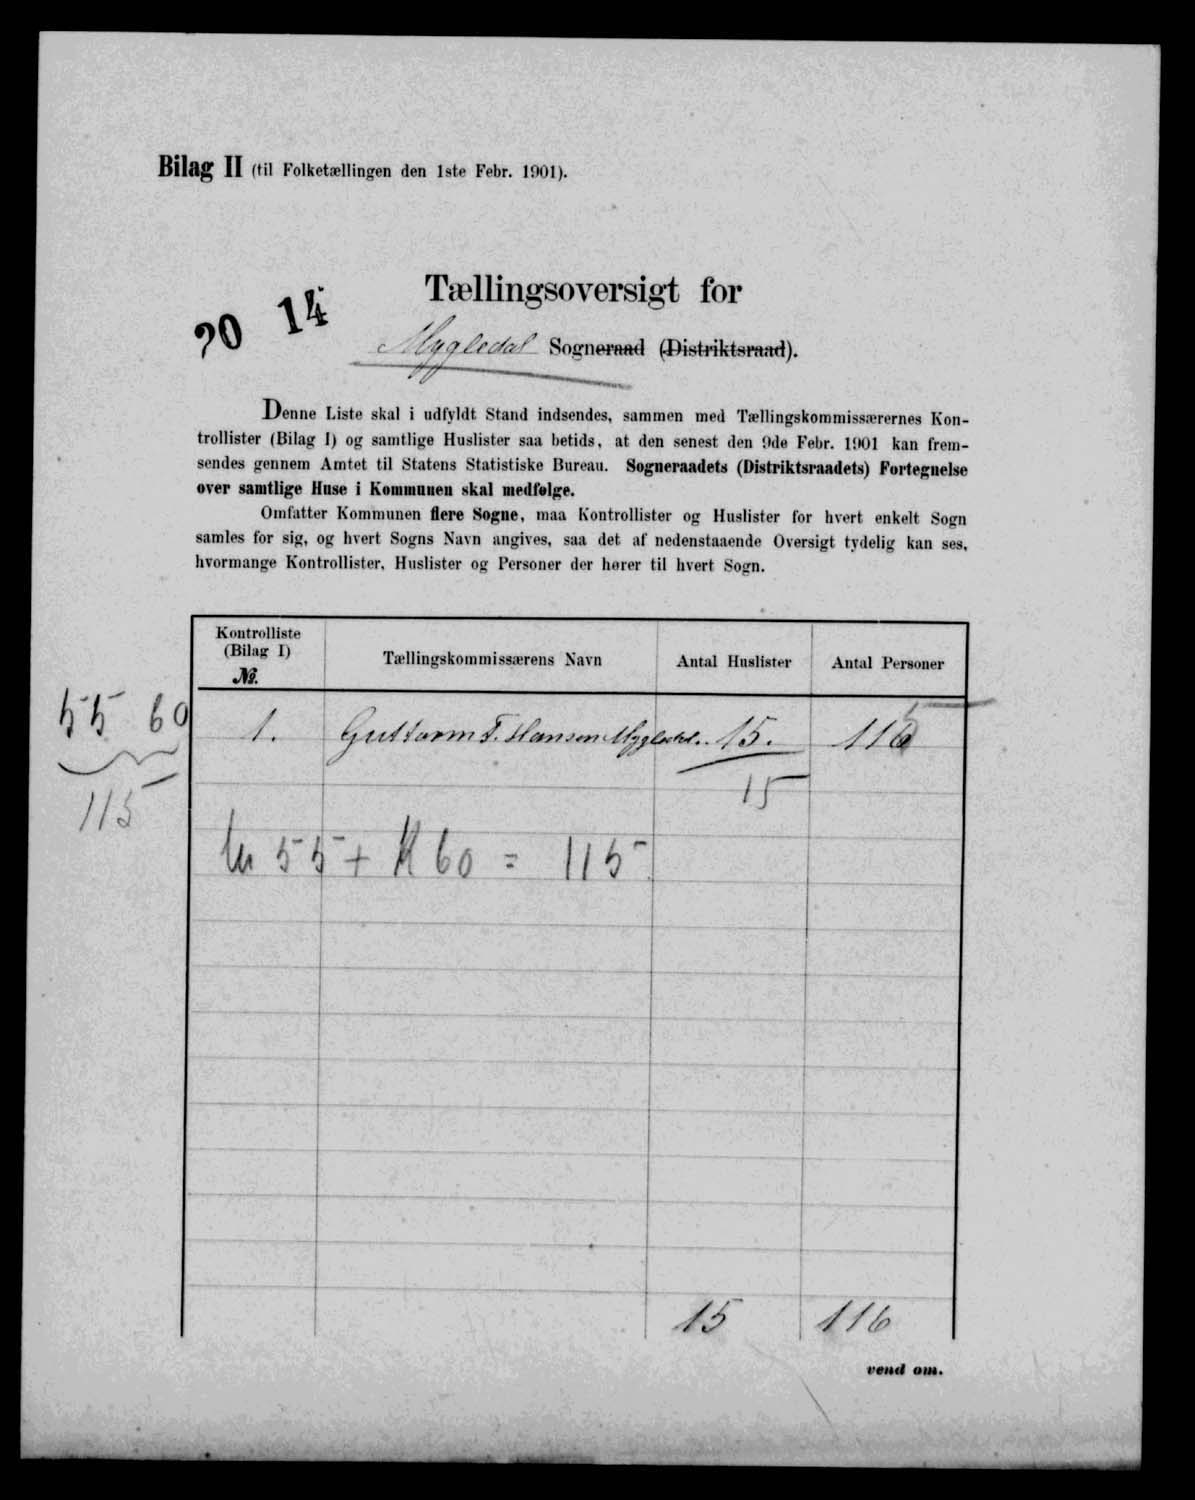 Bilag II (til Folketællingen den 1ste Febr. 1901).
Tællingsoversigt for
20 14
Mygledal Sogneraad (Distriktsraad).
Denne Liste skal i udfyldt Stand indsendes, sammen med Tællingskommissærernes Kon-
trollister (Bilag I) og samtlige Huslister saa betids, at den senest den 9de Febr. 1901 kan frem-
sendes gennem Amtet til Statens Statistiske Bureau. Sogneraadets (Distriktsraadets) Fortegnelse
over samtlige Huse i Kommunen skal medfølge.
Omfatter Kommunen flere Sogne, maa Kontrollister og Huslister for hvert enkelt Sogn
samles for sig, og hvert Sogns Navn angives, saa det af nedenstaaende Oversigt tydelig kan ses,
hvormange Kontrollister, Huslister og Personer der hører til hvert Sogn.
Kontrolliste
(Bilag I)
№.
Tællingskommissærens Navn
Antal Huslister
Antal Personer
55 60
115
1. Guttorm F. Hansen Mygledal. 15. 116
5
15
M 55 + K 60 = 115
15 116
vend om.